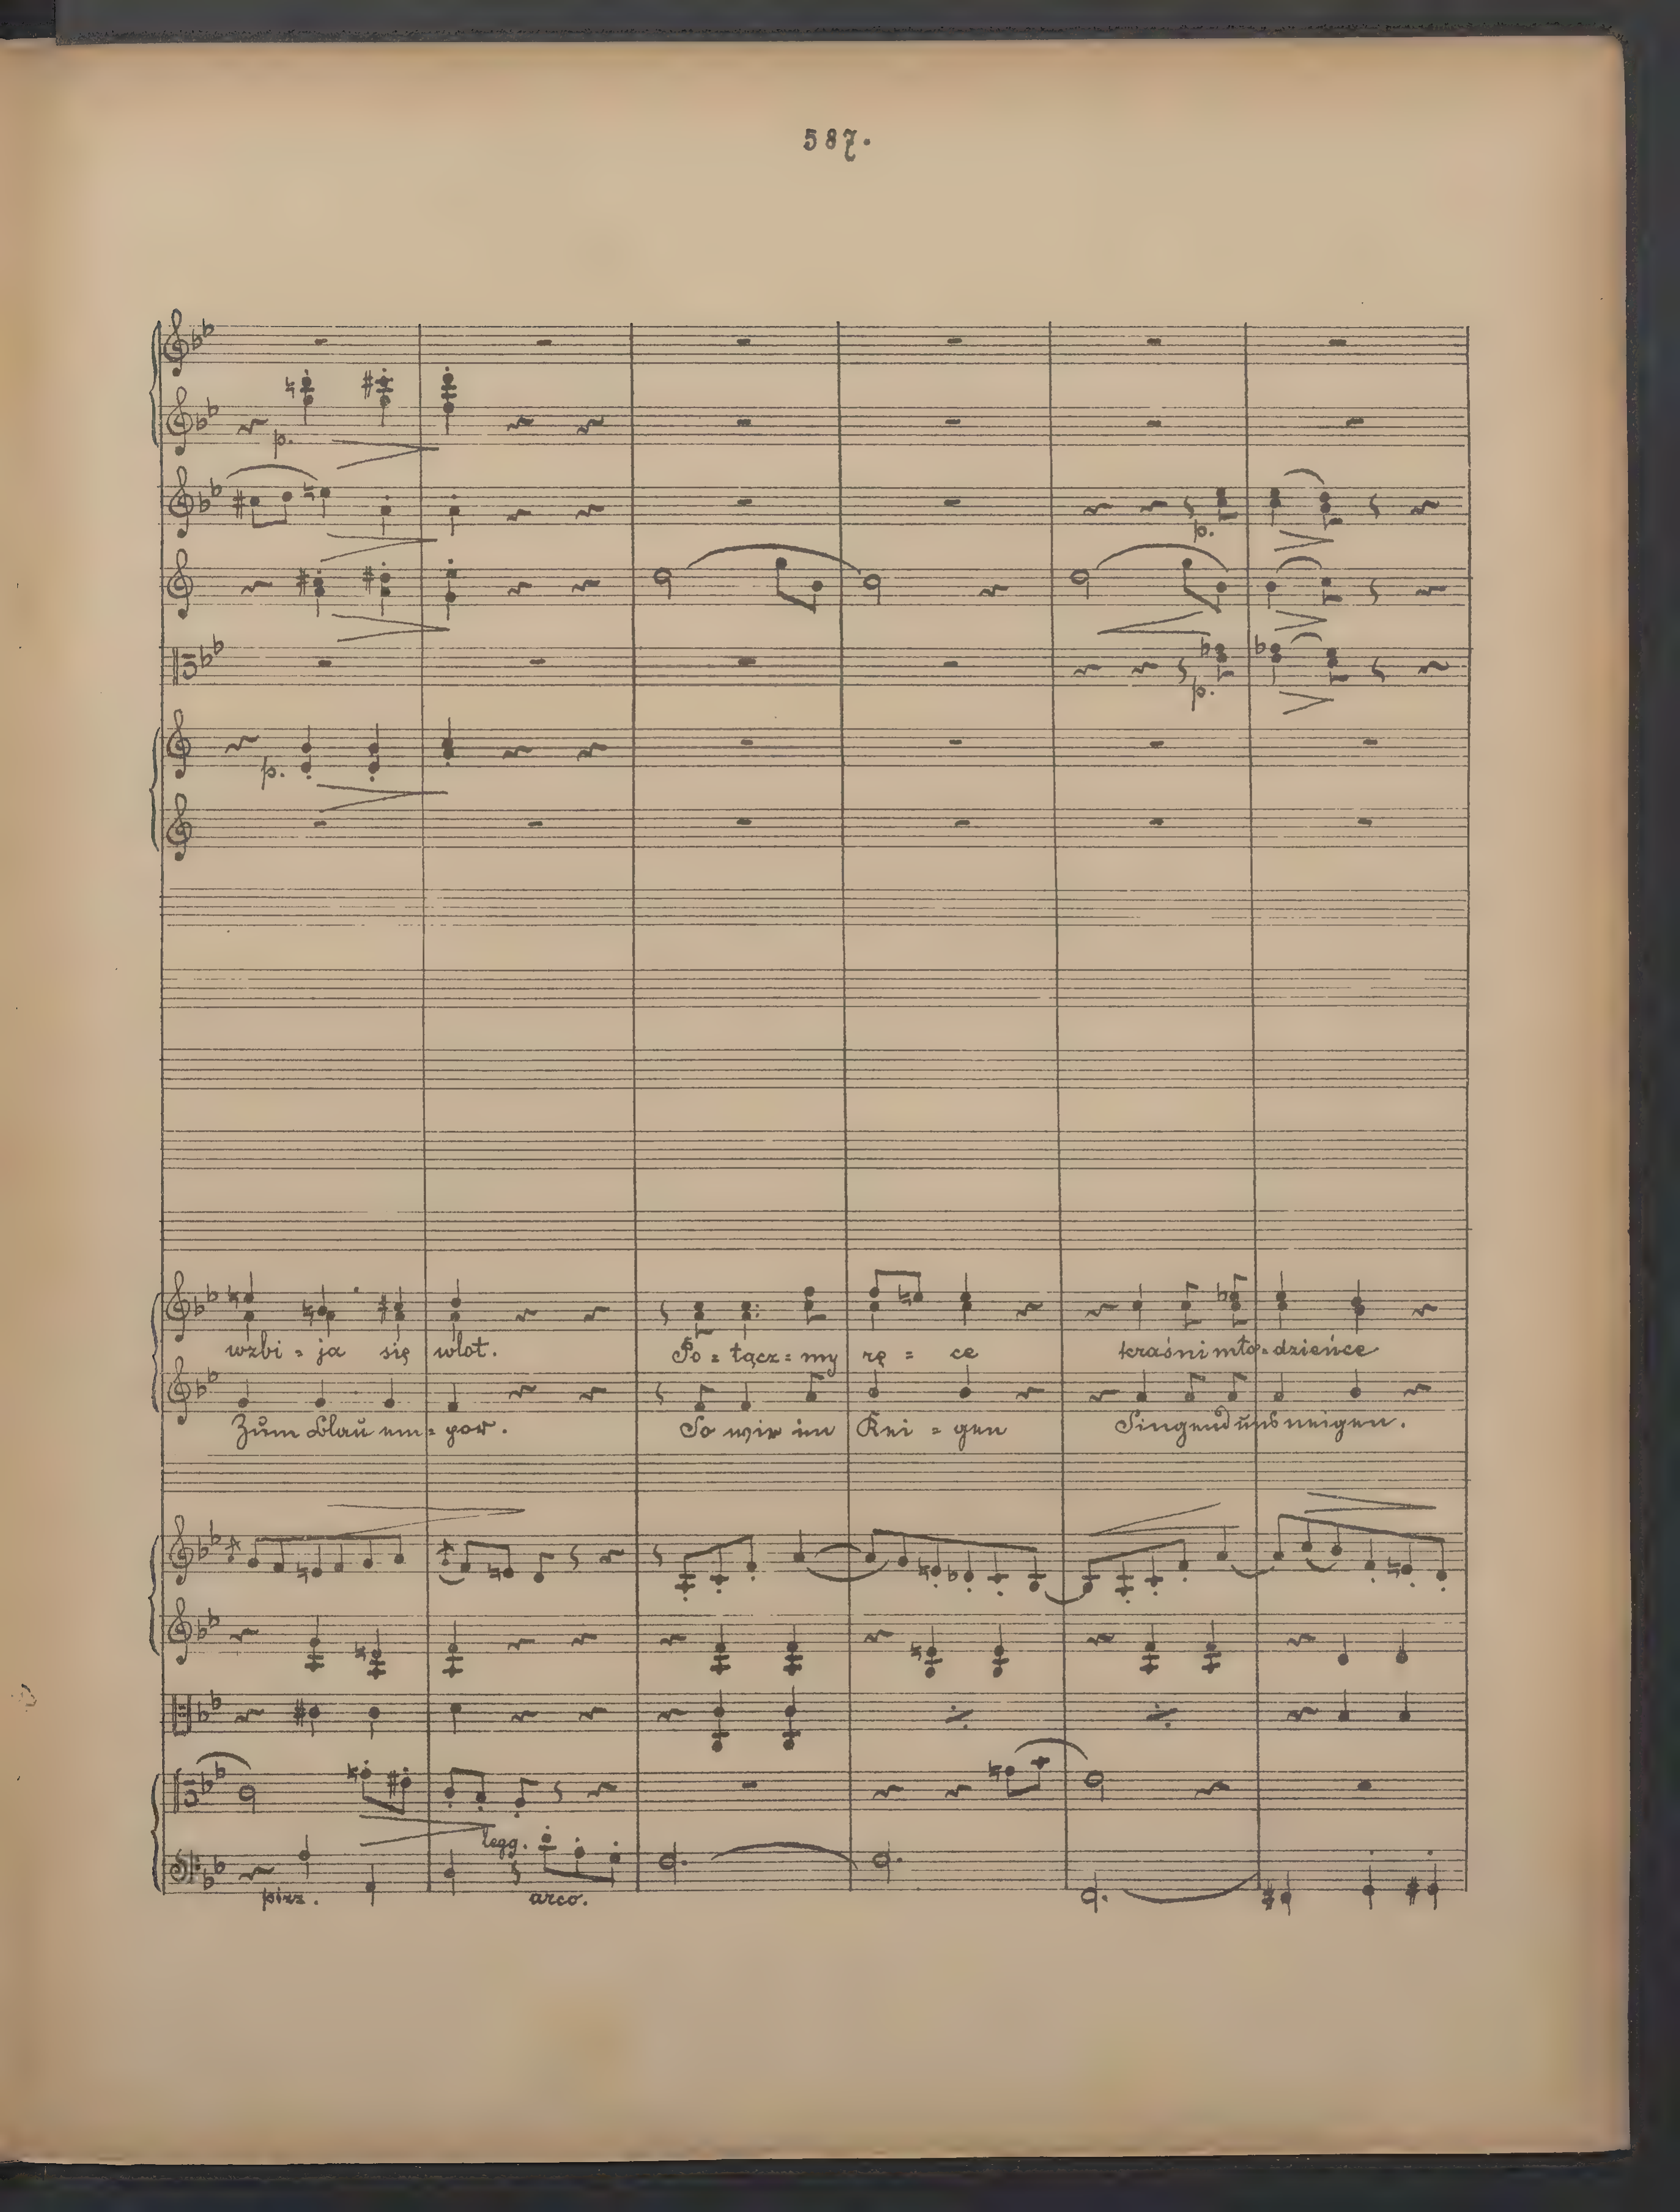 587.
p.
p.
p.
p.
wzbi = ja się wlot. Po = łącz = my rę = ce kraśni mło = dzieńce
Zum Blau em = por. So wir im Rei = gen Singend uns neigen.
legg.
pizz. arco.